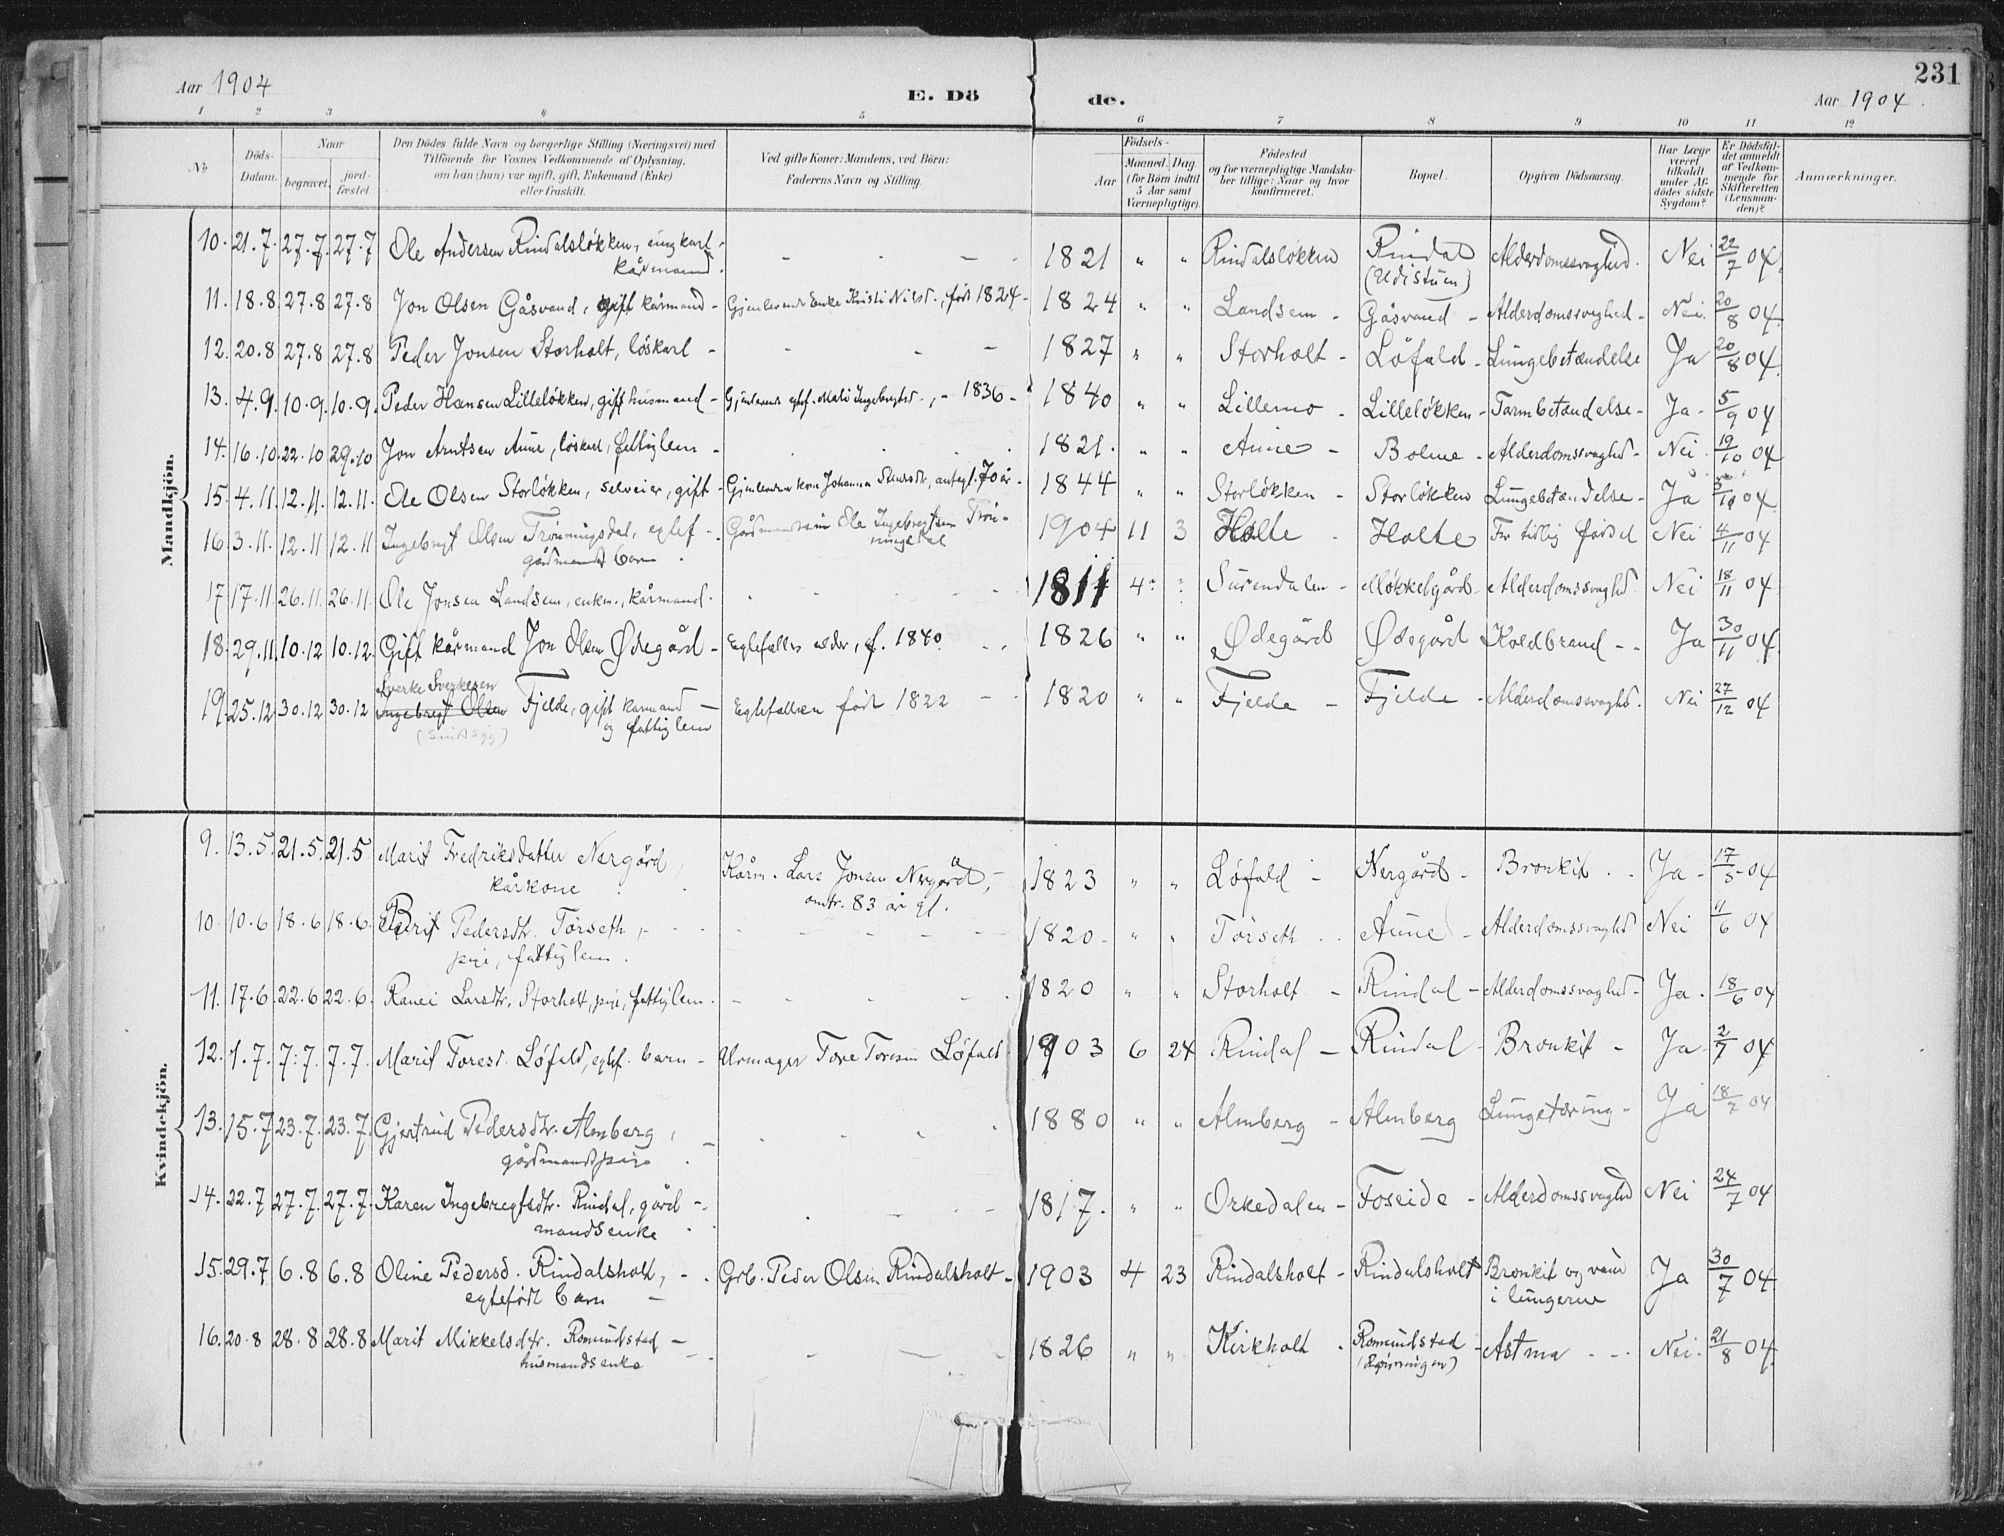 231
Aar 1904
E. Döde.
Aar 1904.
1 2 3 4 5 6 7 8 9 10 11 12
No
Döds-Datum.
Naar
begravet.
jord-fæstet.
Den Dödes fulde Navn og borgerlige Stilling (Næringsvei) med
Tilföiende for Voxnes Vedkommende af Oplysning,
om han (hun) var ugift, gift, Enkemand (Enke)
eller fraskilt.
Ved gifte Koner: Mandens, ved Börn:
Faderens Navn og Stilling.
Födsels-
Aar
Maaned. Dag
(for Börn indtil
5 Aar samt
Værnepligtige).
Födested
og for værnepligtige Mandska-
ber tillige: Naar og hvor
konfirmeret.
Bopæl.
Opgiven Dödsaarsag.
Har Læge
været
tilkaldt
under Af-
dödes sidste
Sygdom?
Er Dödsfal-
det anmeldt
af Vedkom-
mende for
Skifteretten
(Lensman-
den)?
Anmærkninger.
Mandkjön.
10. 21.7. 27.7. 27.7 Ole Andersen Rindalsløkken, ungkarl - - - - 1821 " " Rindalsløkken Rindal Alderdomssvaghed. Nei 22/7 04.
kårmand. (Udistuen)
11. 18.8 27.8 27.8 Jon Olsen Gåsvand, gift kårmand - Gjenlevende Enke Kristi Nilsd., født 1824 - 1824 " " Landsem - Gåsvand - Alderdomssvaghed - Nei. 20/8 04.
12. 20.8 27.8 27.8 Peder Jonsen Storholt, løskarl - - - - 1827 " " Storholt - Løfald - Lungebetændelse Ja 20/8 04.
13. 4.9. 10.9. 10.9. Peder Hansen Lilleløkken, gift husmand - Gjenlevende egtef. Malö Ingebrigtsd., - 1836 - 1840 " " Lillemo - Lilleløkken - Tarmbetændelse - Ja - 5/9 04
14. 16.10 22.10 29.10 Jon Arntsen Aune, løskarl, fattiglem - 1821. " " Aune - Bolme - Alderdomssvaghed - Nei. 19/10 04
15. 4.11. 12.11. 12.11. Ole Olsen Storløkken, selveier, gift - Gjenlevende kone Johanna Sivertsdr, antagl. 70 år - 1844 " " Storløkken - Storløkken Lungebetændelse - Ja 04.
16. 3.11. 12.11 12.11 Ingebrigt Olsen Trønningsdal, egtef - Gårdmandssøn Ole Ingebrigtsen Trøn- 1904 11 3 Holte - Holte For tidlig født Nei 4/11 04
gårdmands barn. ningsdal
17 17.11 26.11. 26.11. Ole Jonsen Landsem, enkm., kårmand. - - - 1811 4 ? Surendalen - Møkkelgård - Alderdomssvaghed. Nei 18/11 04
18. 29.11. 10.12 10.12. Gift kårmand Jon Olsen Ødegård - Egtefælles alder, f. 1840. 1826 " " Ødegård Ødegård Koldbrand - - Ja 30/11 04.
Sverke Sverkesen
19. 25.12 30.12 30.12 Ingebrigt Olsen Fjelde, gift kårmand - Egtefællen født 1822 - - 1820 " " Fjelde - Fjelde - Alderdomssvaghed. Nei 27/12 04
og fattiglem
Kvindekjön.
9. 13.5 21.5. 21.5 Marit Fredriksdatter Nergård, Kårm. Lars Jonsen Nergård, - 1823 " " Løfald - Nergård - Bronkit . . Ja - 17/5 04
kårkone omtr. 83 år gl.
10. 10.6 18.6 18.6. Berit Pedersdtr. Tørseth, - - - 1820 - " " Tørseth . . Aune - Alderdomssvaghed Nei 11/6 04
pige, fattiglem.
11. 17.6 22.6 22.6. Ranei Larsdtr. Storholt, pige, fattiglem. - - - 1820 " " Storholt - Rindal - Alderdomssvaghed - Ja. 18/6 04
12. 1.7. 7.7. 7.7. Marit Toresd. Løfald, egtef. barn - Urmager Tore Toresen Løfald 1903 6 24 Rindal - Rindal - Bronkit - Ja 2/7 04
13. 15.7 23.7. 23.7. Gjertrud Pedersdtr. Almberg, - - - 1880 " " Almberg - Almberg Lungetæring - Ja 18/7 04
gårdmandspige
14. 22.7 27.7. 27.7. Karen Ingebregtsdtr. Rindal, gård - - - 1817. " " Orkedalen - Foseide - Alderdomssvaghed Nei 24/7 04
mandsenke
15. 29.7 6.8 6.8 Oline Pedersd. Rindalsholt, - Grb. Peder Olsen Rindalsholt - 1903 4 23 Rindalsholt - Rindalsholt Bronkit og vand Ja 30/7 04
egtefødt barn - i lungerne
16. 20.8 28.8 28.8 Marit Mikkelsdtr. Romundstad - - - 1826 " " Kirkholt . Romundstad - Astma - - Nei. 21/8 04.
husmandsenke